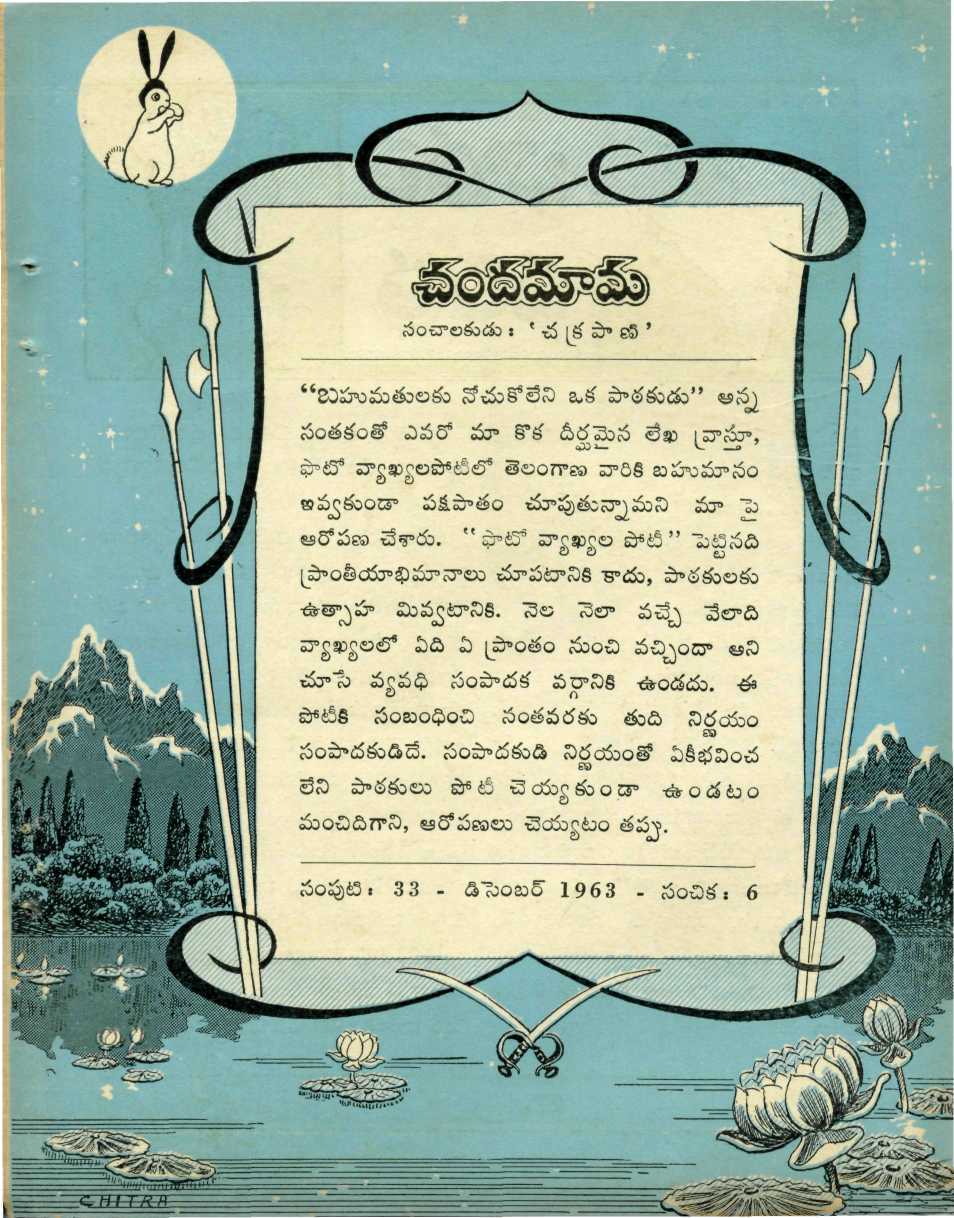 చందమామ
సంచాలకుడు : ' చ క్ర పా ణి '
“బహుమతులకు నోచుకోలేని ఒక పాఠకుడు” అన్న
సంతకంతో ఎవరో మా కొక దీర్ఘమైన లేఖ వ్రాస్తూ,
ఫొటో వ్యాఖ్యలపోటీలో తెలంగాణ వారికి బహుమానం
ఇవ్వకుండా పక్షపాతం చూపుతున్నామని మా పై
ఆరోపణ చేశారు. “ ఫొటో వ్యాఖ్యల పోటీ ” పెట్టినది
ప్రాంతీయాభిమానాలు చూపటానికి కాదు, పాఠకులకు
ఉత్సాహ మివ్వటానికి. నెల నెలా వచ్చే వేలాది
వ్యాఖ్యలలో ఏది ఏ ప్రాంతం నుంచి వచ్చిందా అని
చూసే వ్యవధి సంపాదక వర్గానికి ఉండదు. ఈ
పోటీకి సంబంధించి నంతవరకు తుది నిర్ణయం
సంపాదకుడిదే. సంపాదకుడి నిర్ణయంతో ఏకీభవించ
లేని పాఠకులు పోటీ చెయ్యకుండా ఉండటం
మంచిదిగాని, ఆరోపణలు చెయ్యటం తప్పు.
సంపుటి : 33 - డిసెంబర్ 1963 - సంచిక : 6
CHITRA